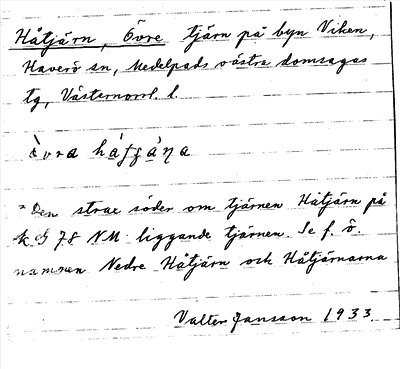 Håtjärn, Övre tjärn på byn Viken,
Haverö sn, Medelpads västra domsagas
tg, Västernorrl. l.
Den strax söder om tjärnen Håtjärn på
78 NM liggande tjärnen. Se f. ö.
namnen Nedre Håtjärn och Håtjärnarna
Valter Jansson 1933